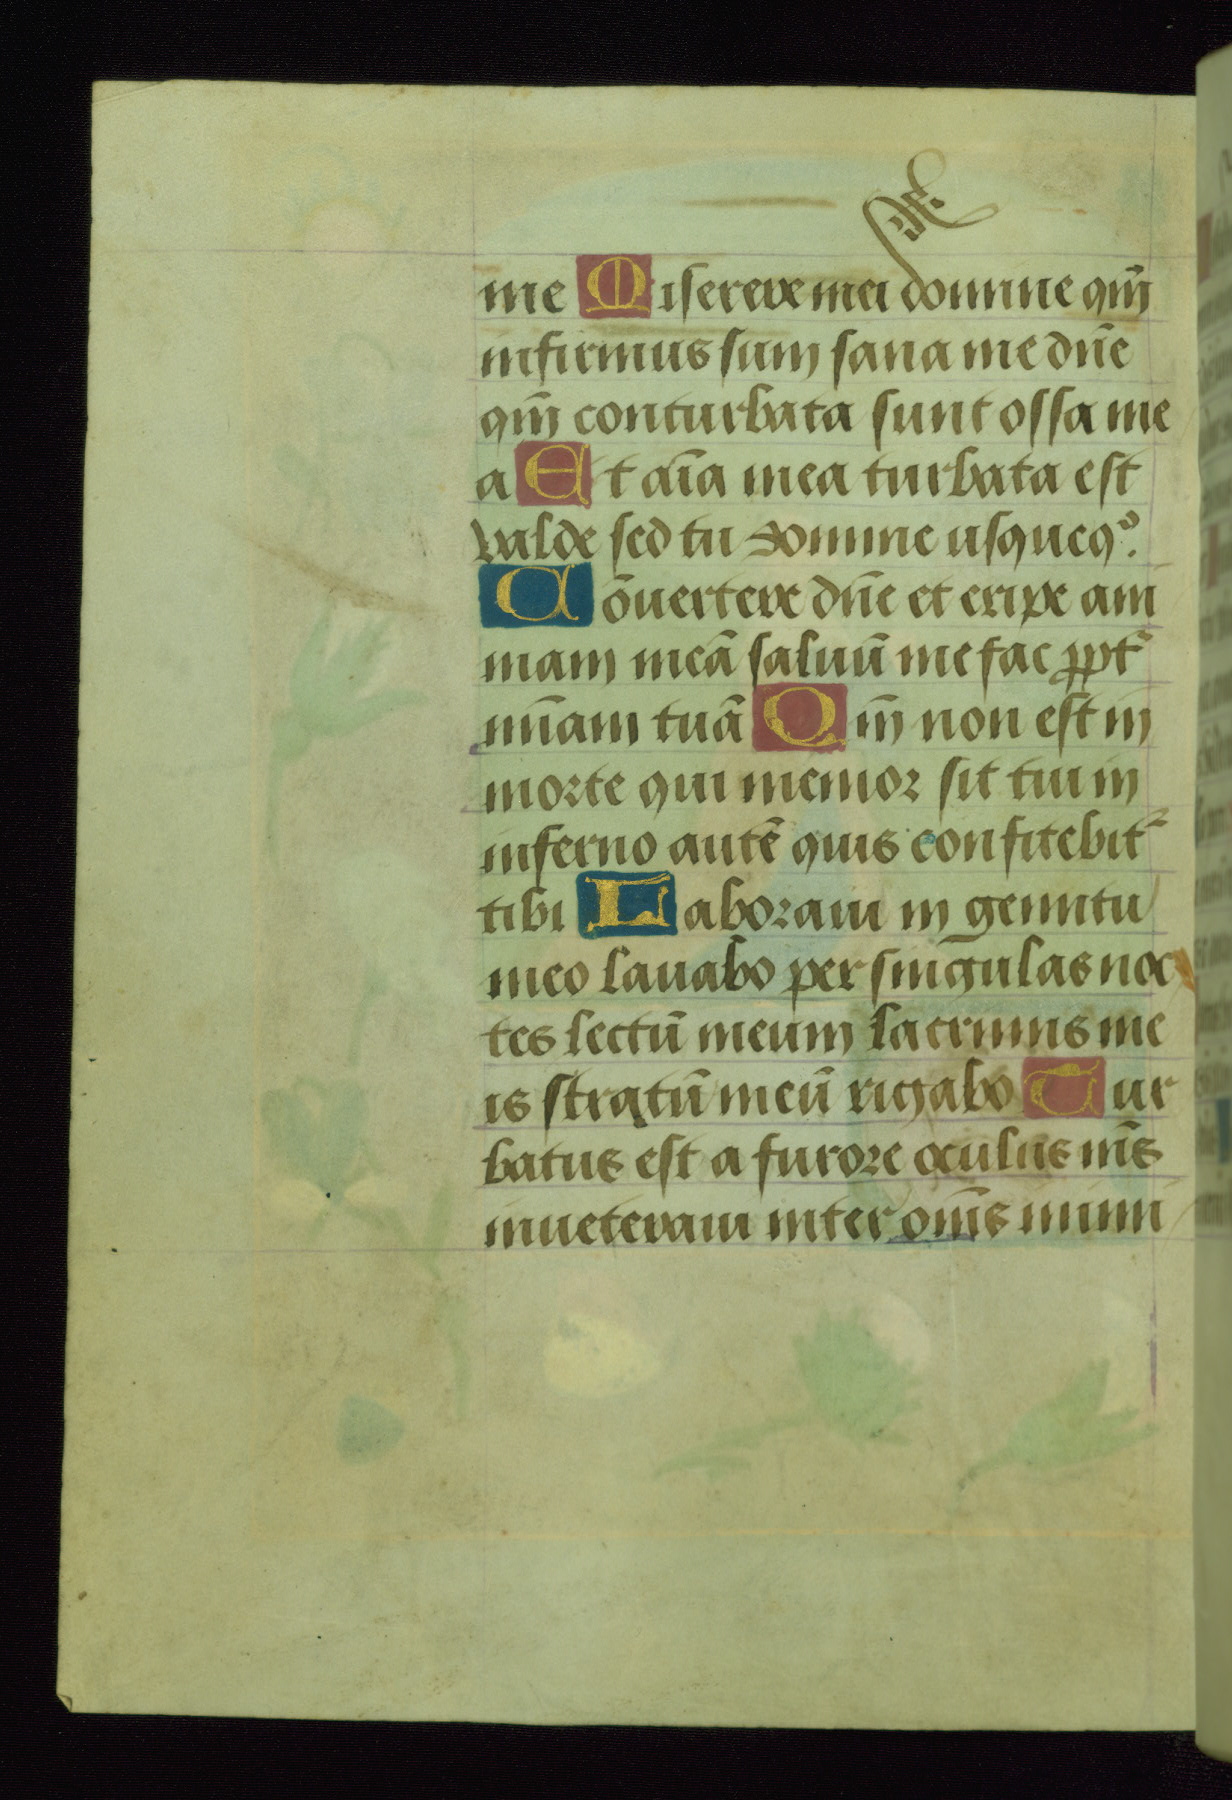 me Miserere mei domine qm̄
infirmus sum sana me dn̄e
qm̄ conturbata sunt ossa me
a Et aīa mea turbata est
valde sed tu domine usqueqº.
Cōuertere dn̄e et eripe ani
mam meā saluū me fac ꝓpt
mīam tuā Qm̄ non est in
morte qui memor sit tui in
inferno autē quis confitebit
tibi Laboraui in gemitu
meo lauabo per singulas noc
tes lectū meum lacrimis me
is stratū meū rigabo Tur
batus est a furore oculus m̄s
inueteraui inter om̄s inimi